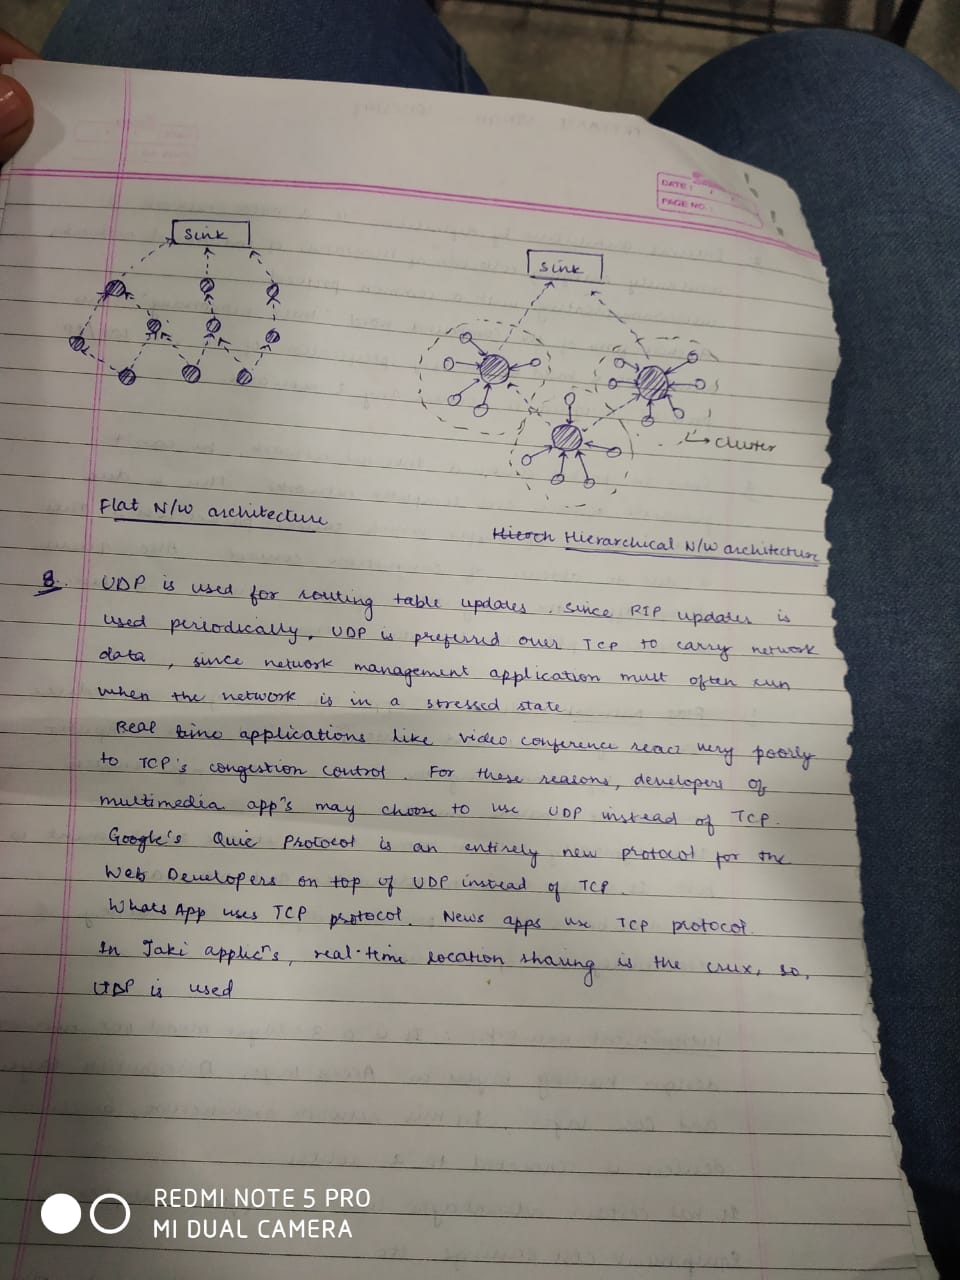 DATE:
PAGE NO.:
Sink
Sink
cluster
Flat N/W architecture
Hieroch Hierarchical N/W architecture
8.
UDP is used for routing table updates. Since RIP updates is
used periodically, UDP is preferred over TCP to carry network
data, since network management application must often run
when the network is in a stressed state
Real time applications like video conference react very poorly
to TCP's congestion control. For these reasons, developers of
multimedia app's may choose to use UDP instead of TCP.
Google's Quic Protocol is an entirely new protocol for the
Web Developers on top of UDP instead of TCP.
WhatsApp uses TCP protocol. News apps use TCP protocol
In Taxi applicns, real-time location sharing is the crux, so,
UDP is used
REDMI NOTE 5 PRO
MI DUAL CAMERA